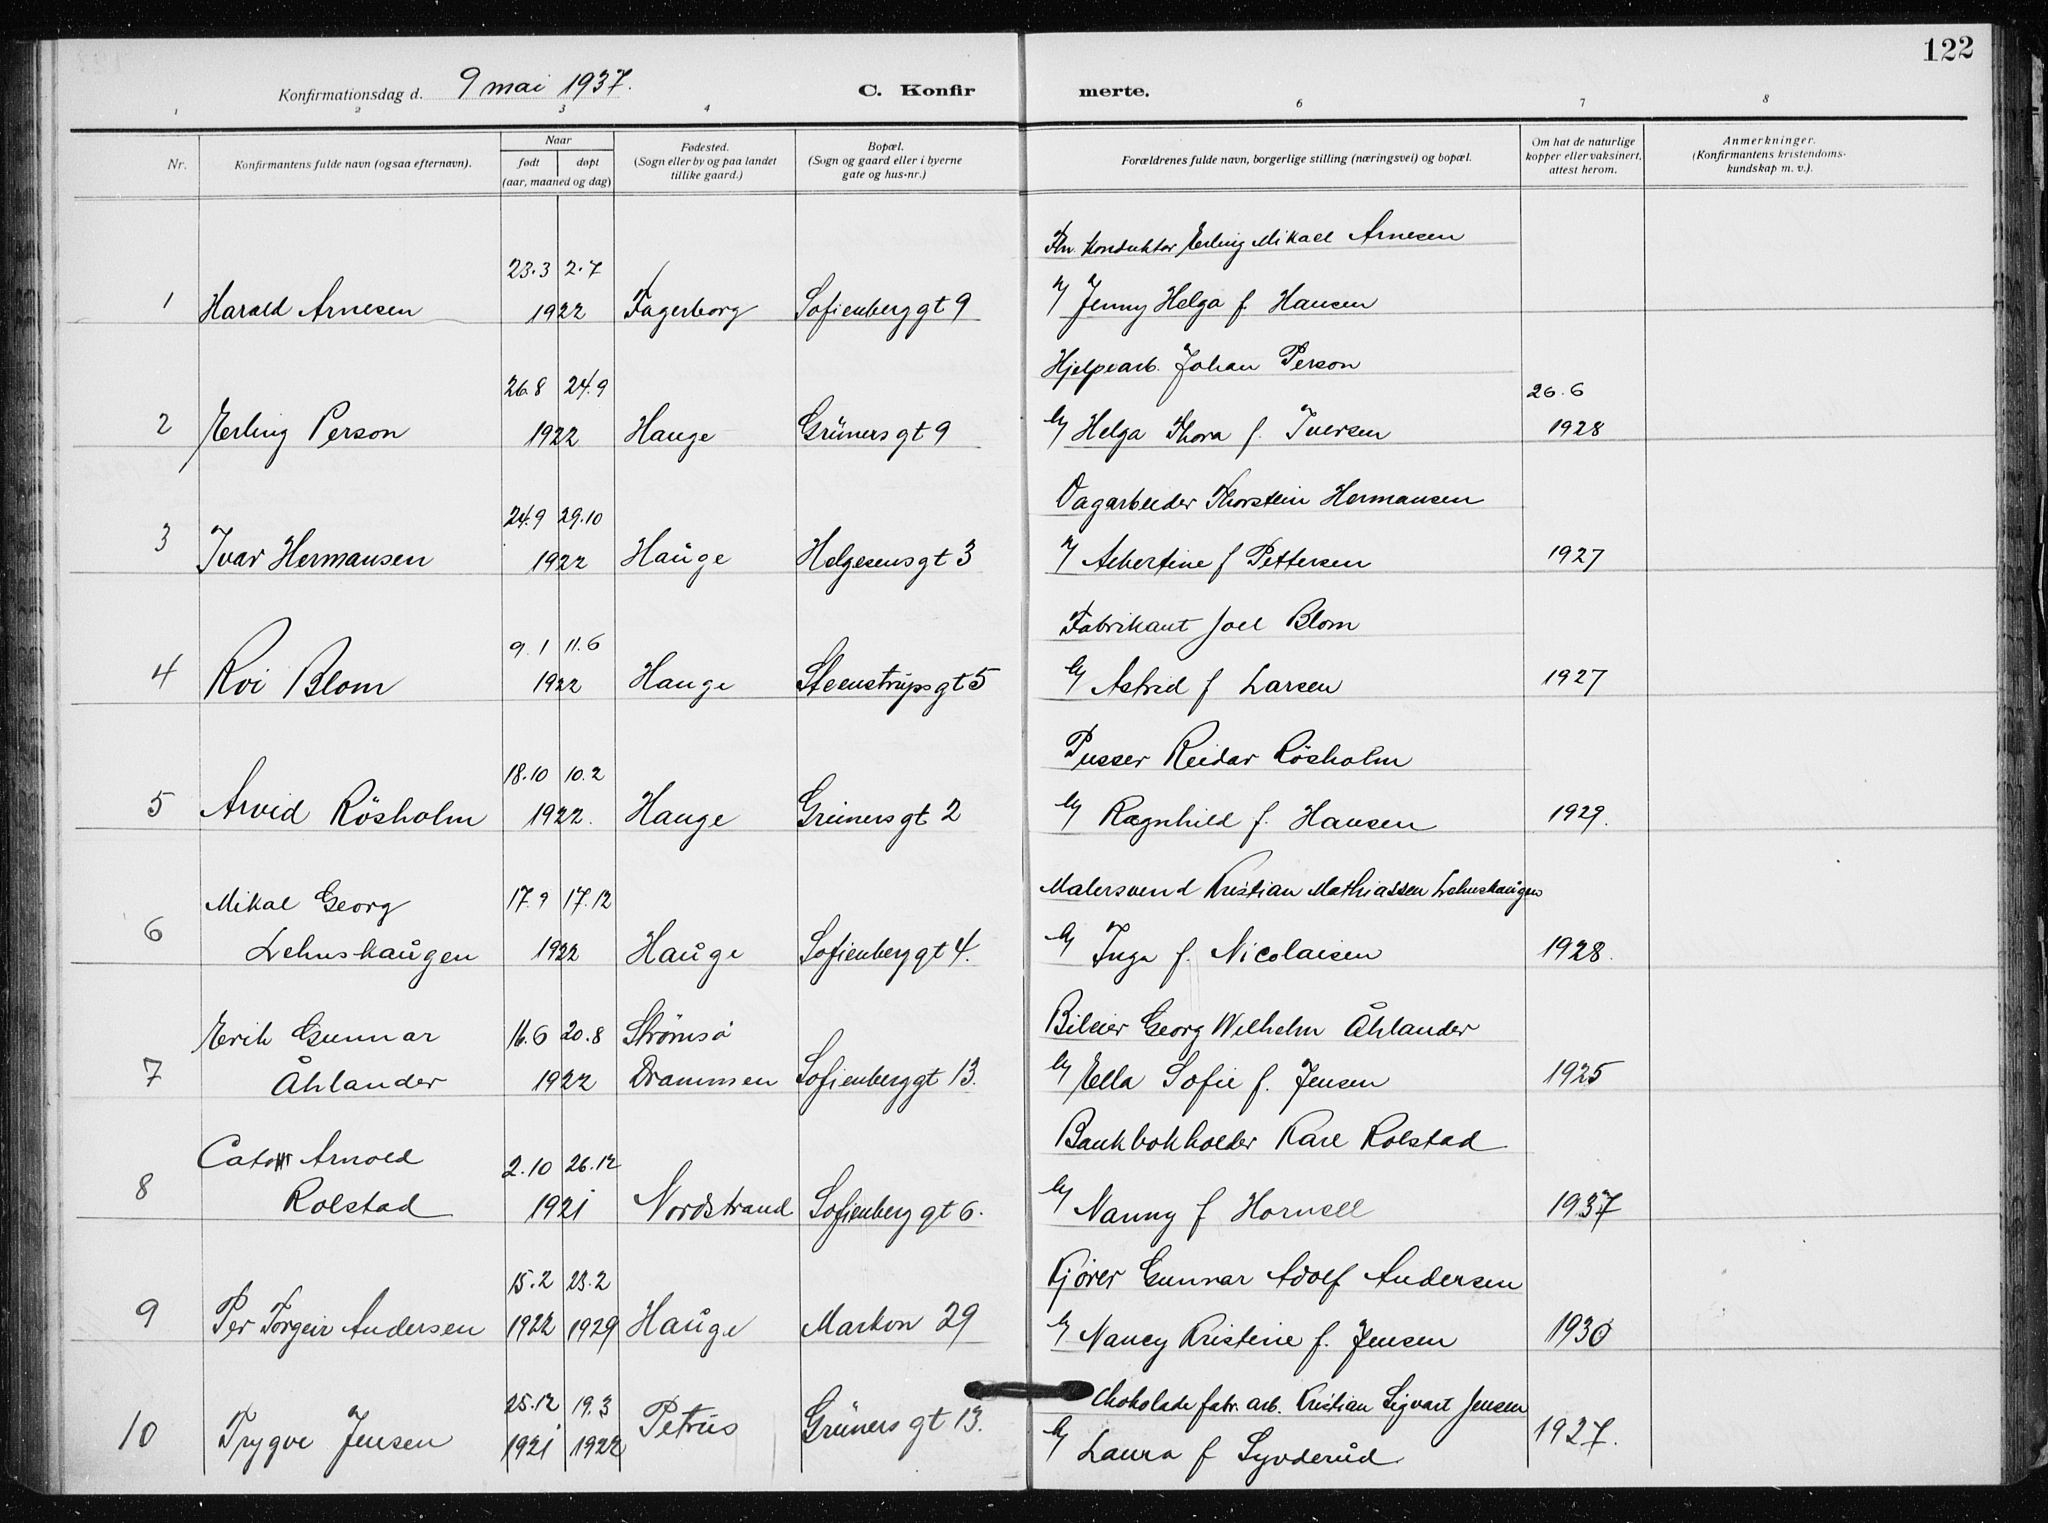 122
Konfirmationsdag d. 9 mai 1937.
C. Konfirmerte.
1 2 3 4 6 7 8
Nr.
Konfirmantens fulde navn (ogsaa efternavn).
Naar
født døpt
(aar, maaned og dag)
Fødested.
(Sogn eller by og paa landet
tillike gaard.)
Bopæl.
(Sogn og gaard eller i byerne
gate og hus-nr.)
Forældrenes fulde navn, borgerlige stilling (næringsvei) og bopæl.
Om hat de naturlige
kopper eller vaksinert,
attest herom.
Anmerkninger.
(Konfirmantens kristendoms-
kundskap m. v.).
Konduktør Erling Mikael Arnesen
23.3 2.7
1 Harald Arnesen 1922 Fagerborg Sofienberggt 9 Jenny Helga f. Hansen
Hjelpearb. Johan Person
26.8 24.9 26.6
2 Erling Person 1922 Hauge Grüners gt 9 Helga Thora f. Iversen 1928
Dagarbeider Thorstein Hermansen
24.9 29.10
3 Ivar Hermansen 1922 Hauge Helgesens gt 3 Albertine f Pettersen 1927
Fabrikant Joel Blom
9.1 11.6
4 Roi Blom 1922 Hauge Steenstrups gt 5 Astrid f Larsen 1927
Pusser Reidar Rösholm
18.10 10.2
5 Arvid Rösholm 1922. Hauge Grüners gt 2 Ragnhild f. Hansen 1929.
Malersvend Kristian Mathiassen Lehnskaugen
Mikal Georg 17.9 17.12
6 Lehnskaugen 1922 Hauge Sofienberggt 4. Inga f. Nicolaisen 1928.
Bileier Georg Wilhelm Åhlander
Erik Gunnar 16.6 20.8 Strømsø
7 Åhlander 1922 Drammen Sofienberggt 13. Ella Sofie f. Jensen 1925
Bankbokholder Karl Rolstad
Cato Arnold 2.10 26.12
8 Rolstad 1921 Nordstrand Sofienberg gt 6. Nanny f Hornell 1937
Kjører Gunnar Adolf Andersen
15.2 23.2
9 Per Torgeir Andersen 1922 1929 Hauge Markvn 29 Nancy Kristine f. Jensen 1930
Chokolade fabr. arb. Kristian Sigvart Jensen
25.12 19.3
10 Trygve Jensen 1921 1922 Petrus Grüners gt 13. Laura f Syvderud 1927.